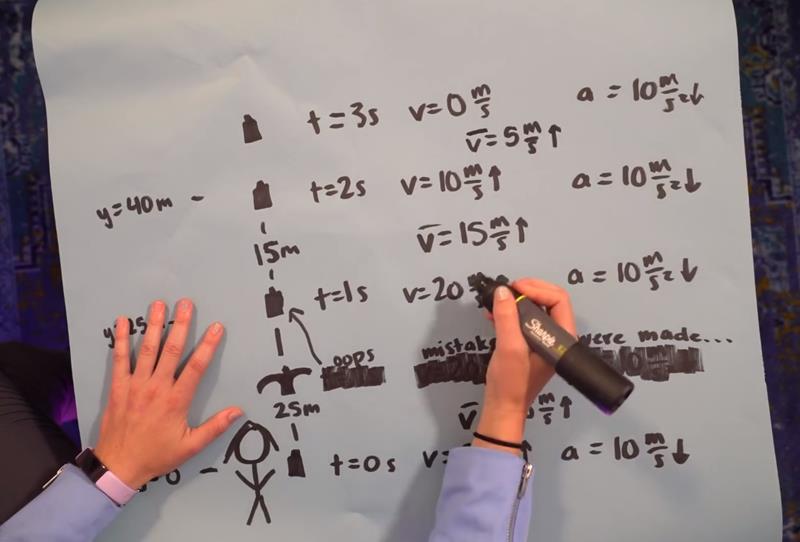 t=3s v=0 m/s a=10 m/s² ↓
v̄=5 m/s ↑
y=40m – t=2s v=10 m/s ↑ a=10 m/s² ↓
15m v̄=15 m/s ↑
t=1s v=20 a=10 m/s² ↓
oops were made...
25m
t=0s a=10 m/s² ↓
Sharpie